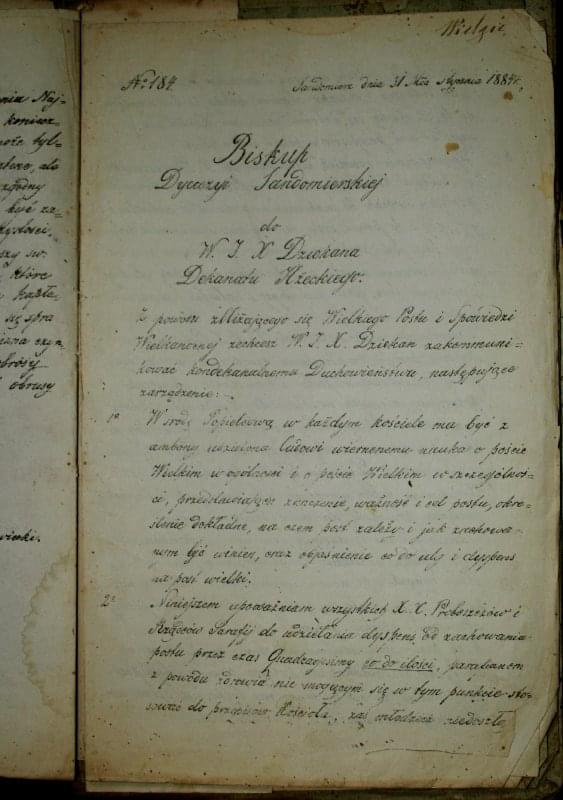 nia Naj-
koniecz-
może tyl-
ale
zgodny
być za-
szy św.
które
kapła-
się spra
obrusy
wiecki.
Wielgie
No 184
Sandomierz dnia 31 Mca stycznia 1884 r.
Biskup
Dyecezyi Sandomierskiej
do
W. J. X Dziekana
Dekanatu Iłżeckiego.
Z powodu zbliżającego się Wielkiego Postu i Spowiedzi
Wielkanocnej zechcesz W. J. X. Dziekan zakommuni-
kować kondekanalnemu Duchowieństwu, następujące
zarządzenie:
1o W środę Popielcową w każdym kościele ma być z
ambony uczniona ludowi wiernenemu nauka o poście
Wielkim w ogólności i o poście Wielkim w szczególnoś-
ci, przedstawiająca znaczenie, ważność i cel postu, okre-
ślenie dokładne, na czem post zależy i jak zachowa-
nym być winien, oraz objaśnienie co do ulg i dyspens
na post wielki.
2o Niniejszem upoważniam wszystkich X. X. Proboszczów i
Rządców Parafij do udzielania dyspens od zachowania
postu przez czas Quadragesimy co do ilości, parafianom
z powodu zdrowia nie mogącym się w tym punkcie sto-
sować do przepisów Kościoła, zaś młodzież niedoszłą